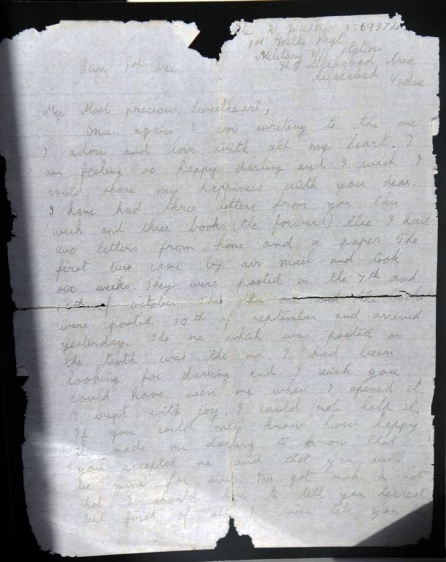 W. Walker
1st Wilts Regt
Military W/T Station
Area
India
Sun 1st Dec
My Most precious Sweetheart,
Once again I am writing to the one
I adore and love with all my heart. I
am feeling so happy darling and I wish I
could share my happiness with you dear.
I have had three letters from you this
week and three books (the forward). Also I had
two letters from home and a paper. The
first two came by air mail and took
six weeks. They were posted on the 7th and
of October. The
were posted 30th of September and arrived
yesterday. The one which was posted on
the tenth was the one I had been
looking for darling and I wish you
could have seen me when I opened it
I wept with joy, I could not help it,
If you could only know how happy
it made me darling to know that
you accepted me and that you will
be mine for ever. I've got such a lot
I should to tell you dearest
but first of all I will tell you